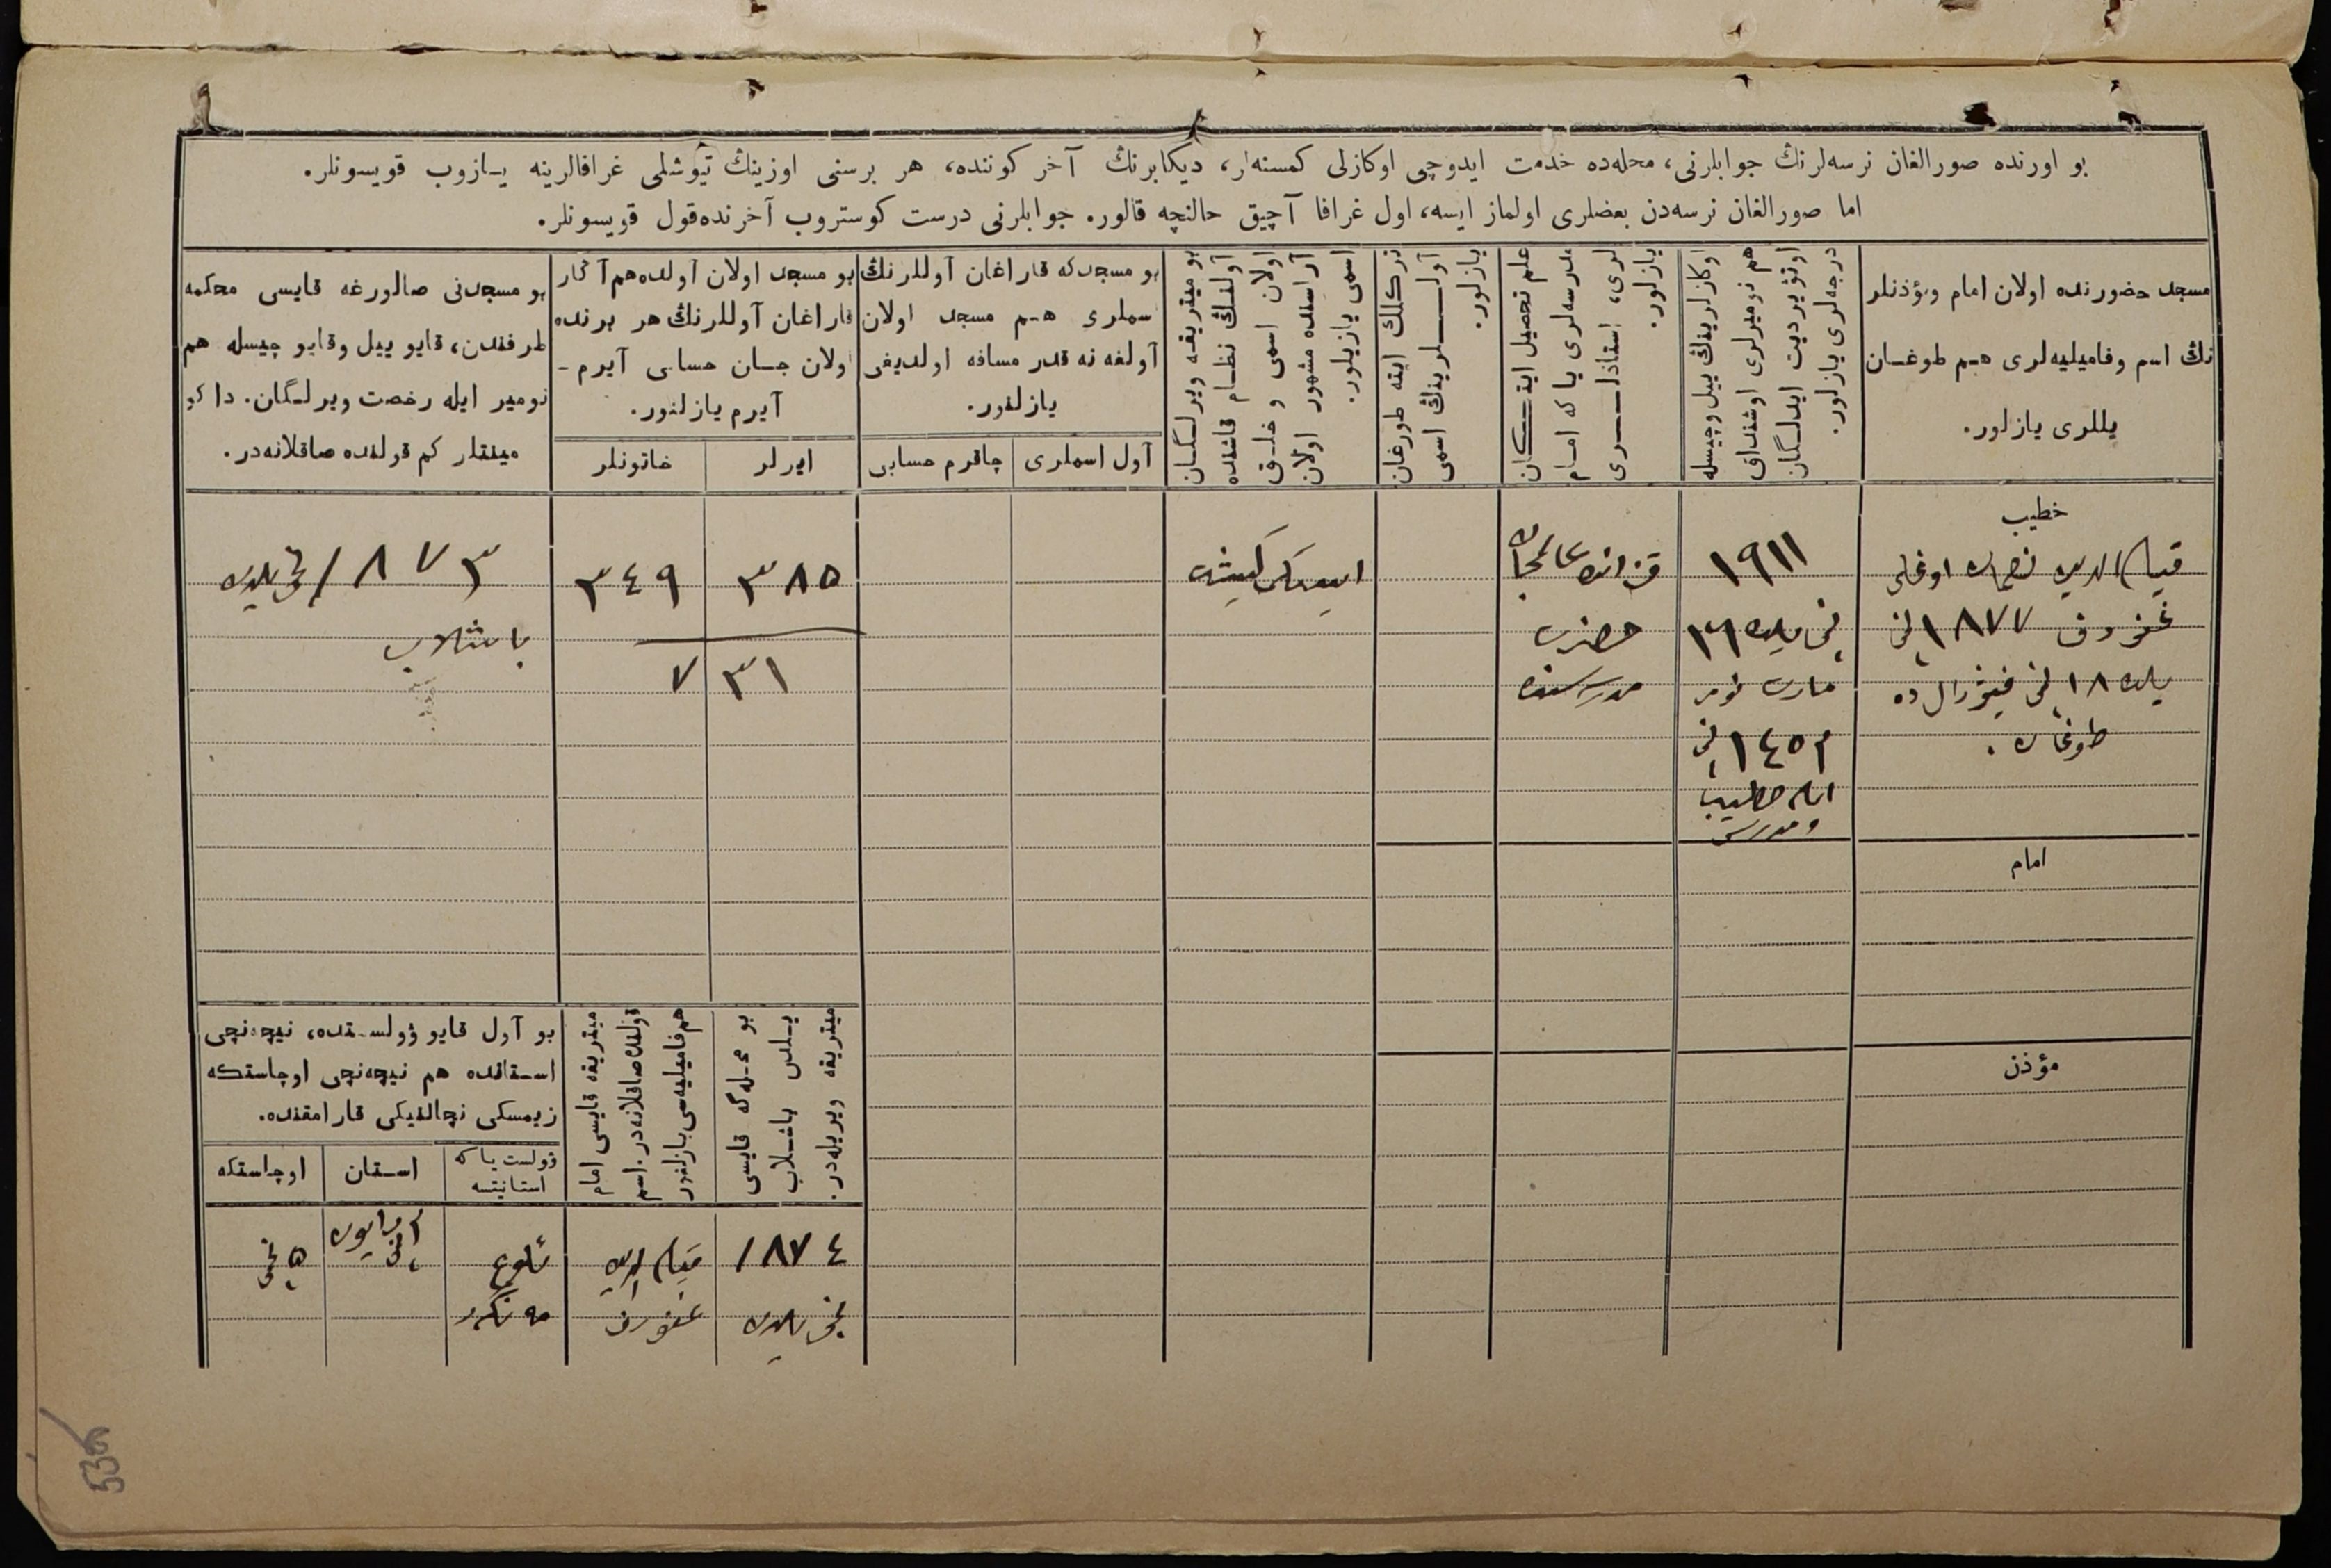 بو اورنده صورالغان نرسه‌لرنڭ جوابلرنی، محله‌ده خدمت ایدوچی اوکازلی کمسنه‌لر، دیکابرنڭ آخر کوننده، هر برسنی اوزینڭ تیوشلی غرافالرینه یازوب قویسونلر.
اما صورالغان نرسه‌دن بعضلری اولماز ایسه، اول غرافا آچیق حالنچه قالور. جوابلرنی درست کوستروب آخرنده قول قویسونلر.
مسجد حضورنده اولان امام ومؤذنلر
نڭ اسم وفامیلیه‌لری هم طوغان
یللری یازلور.
اوکازلرینڭ ییل وچیسله
هم نومیرلری اوشنداق
اوتوۋیردیت ایدلگان
درجه‌لری یازلور.
علم تحصیل ایتکان
مدرسه‌لری یا که امام
لری، استاذلری
یازلور.
ترکلك ایته طورغان
آوللرینڭ اسمی
یازلور.
بو میتریقه ویرلگان
آولنڭ نظام قاشنده
اولان اسمی و خلق
آراسنده مشهور اولان
اسمی یازیلور.
بو مسجدکه قاراغان آوللرنڭ
اسملری هم مسجد اولان
آولغه نه قدر مسافه اولدیغی
یازلنور.
آول اسملری
چاقرم حسابی
بو مسجد اولان آولده هم آڭار
قاراغان آوللرنڭ هر برنده
اولان جان حسابی آیرم -
آیرم یازلنور.
ایرلر
خاتونلر
بو مسجدنی صالورغه قایسی محکمه
طرفندن، قایو ییل وقایو چیسله هم
نومیر ایله رخصت ویرلگان. داکو
مینتلر کم قولنده صاقلانه‌در.
خطیب
قیام الدین نعمان اوغلی
غفوروف ١٨٧٧ نچی
یلده ١٨ نچی فیۋرال ده
طوغان.
١٩١١
نچی یلده ٣١
مارت نومر
١٤٥٢ نچی
امام خطیب
ومدرس
قزانده عالمجان
حضرت
مدرسسنده
ایسکی کیشت
٣٨٥
٣٤٩
٧٣١
١٨٧٣ نچی یلدن
باشلاب
امام
مؤذن
بو محله‌گه قایسی
یلدن باشلاب
میتریقه ویریله‌در.
میتریقه قایسی امام
قولنده صاقلانه‌در. اسم
هم فامیلیه‌سی یازلنور
بو آول قایو ۋولستده، نیچه‌نچی
استانده هم نیچه‌نچی اوچاستکه
زیمسکی نچالنیکی قارامقنده.
ۋولست یا که
استانیتسه
استان
اوچاستکه
١٨٧٤
نچی یلدن
قیام الدین
غفوروف
٥ نچی
536